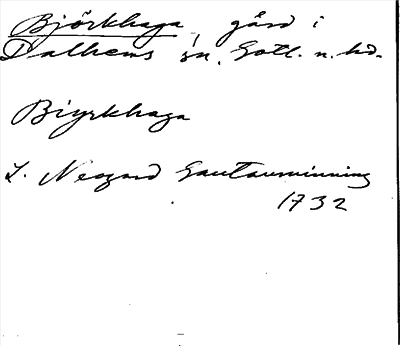 Björkhaga, gård i
Dalhems sn, Gotl. n. hd.
Biyrkhaga
L. Neogard Gautauminning
1732